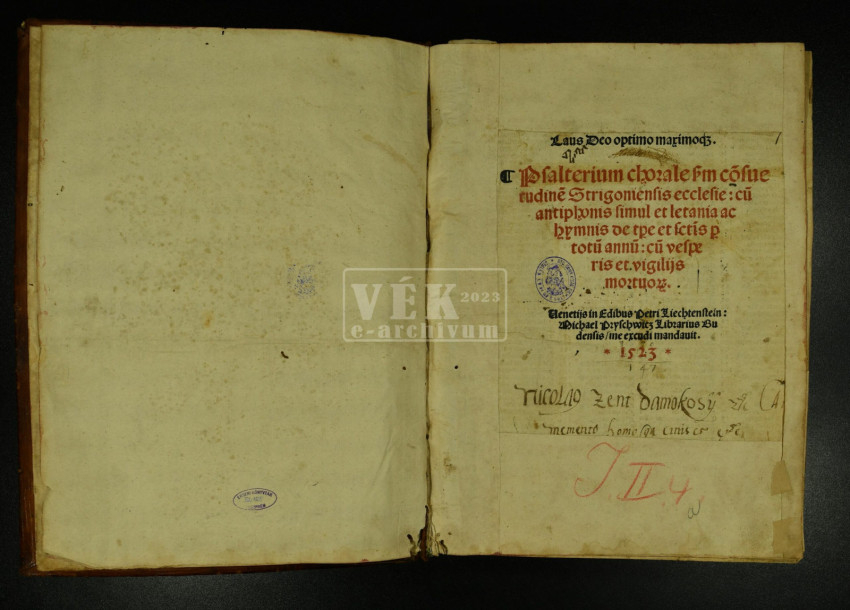 Laus Deo optimo maximoqꝫ.
¶ Psalterium chorale sᵐ cōsue
tudinē Strigoniensis ecclesie: cū
antiphonis simul et letania ac
hymnis de tp̄e et sctīs p̲
totū annū: cū vespe
ris et vigilijs
mortuoꝝ.
Venetijs in Edibus Petri Liechtenstein:
Michael Pryschwicz Librarius Bu
densis/me excudi mandavit.
* 1523 *
Nicolao Zent Damokosÿ
memento homo
J II 4
VÉK 2023
e-archivum